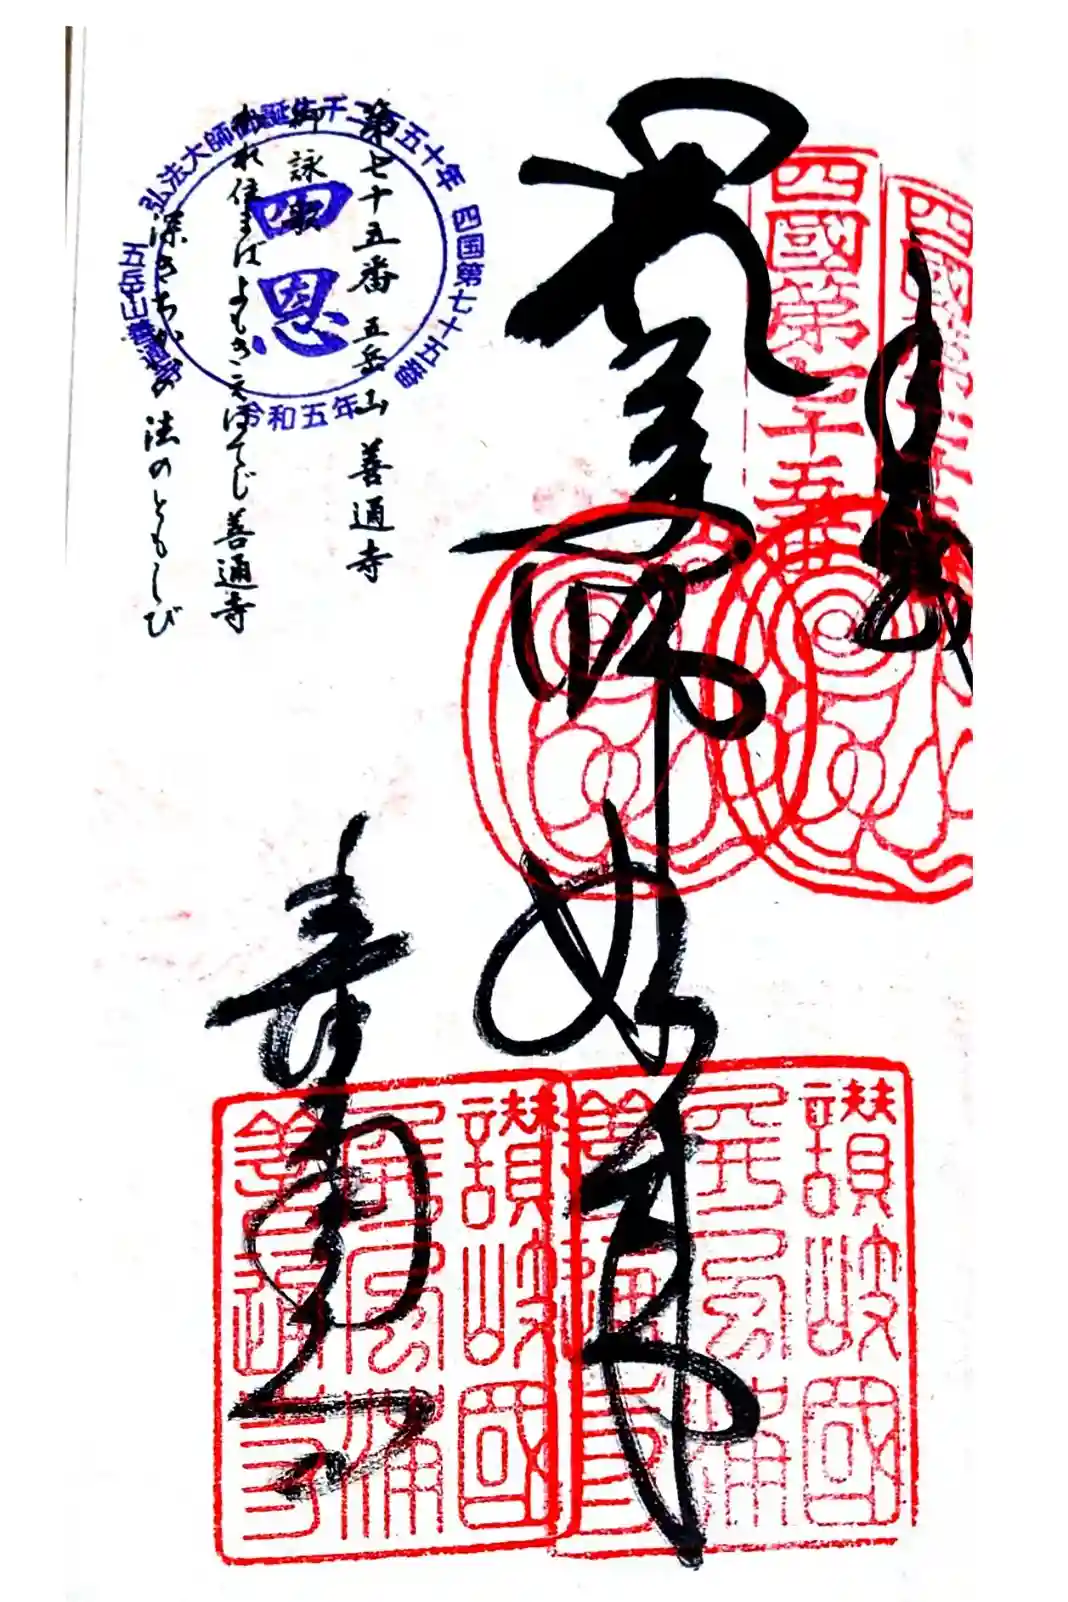 四國第七十五番
奉納
薬師如来
讃岐國
善通寺
善通寺
第七十五番 五岳山 善通寺
御詠歌
われ住まばよもきえはてじ善通寺
深きちかひの法のともしび
弘法大師御誕生千二百五十年
四国第七十五番
令和五年
五岳山善通寺
四恩